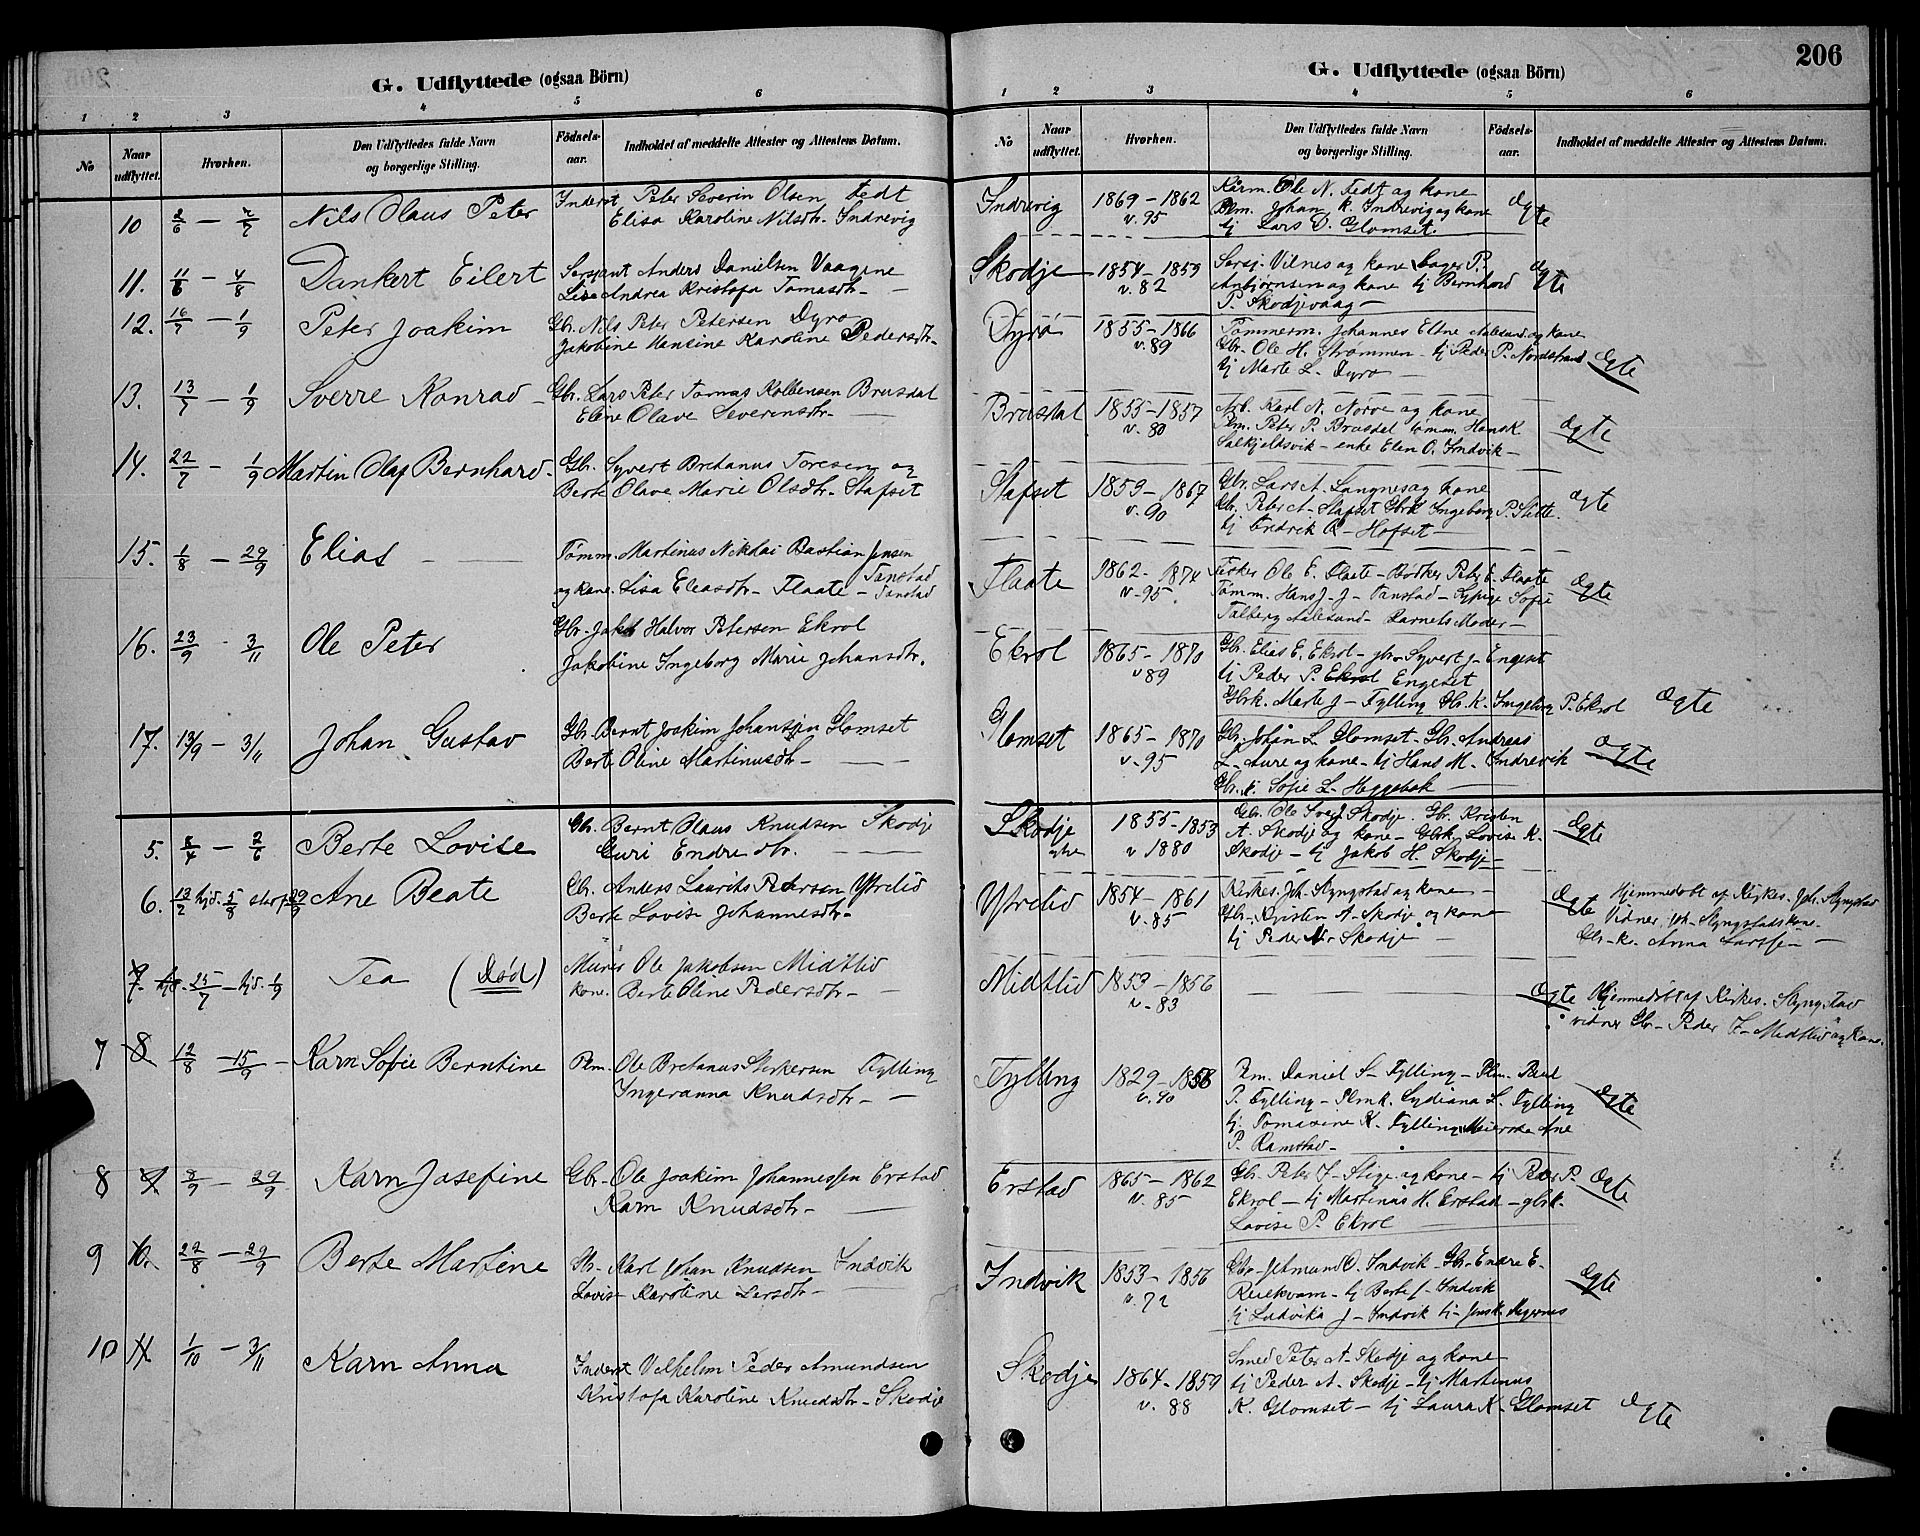 206
G. Udflyttede (ogsaa Börn)
1 2 3 4 5 6
No
Naar udflyttet.
Hvorhen.
Den Udflyttedes fulde Navn
og borgerlige Stilling.
Födsels-
aar.
Indholdet af meddelte Attester og Attestens Datum.
10 2/6 — Nils Olaus Peter Inderst Peter Severin Olsen Fedt
Elisa Karoline Nilsdtr. Indrevig
11. 11/6 — 4/8 Dankert Eilert Sersjant Anders Danielsen Vaagene
Lise Andrea Kristofa Tomasdtr. —
12. 16/7 — 1/9 Peter Joakim Gbr. Nils Peter Petersen Dyrø
Jakobine Hansine Karoline Pedersdtr.
13. 13/7 — 1/9 Sverre Konrad — Gbr. Lars Peter Tomas Kolbensen Brusdal
Eline Olave Severinsdtr. —
14. 22/7 — 1/9 Martin Olaf Bernhard. Gbr. Syvert Bretanus Toresen og
Berte Olave Marie Olsdtr. Stafset
15. 1/8 — 29/9 Elias — Tømm. Martinus Nikolai Bastian Jensen
Tanstad
og kone Lisa Eleasdtr. Flaate — Tanstad
16. 23/9 - 3/11 Ole Peter Gbr. Jakob Halvor Petersen Ekrol
Jakobine Ingeborg Marie Johansdtr.
17. 13/9 — 3/11 Johan Gustav Gbr. Bernt Joakim Johanssen Glomset
Berte Oline Martinusdtr —
5. 8/4 — 2/6 Berte Lovise Gbr. Bernt Olaus Knudsen Skodje
Guri Endresdtr. —
6. 13/2 hjd. 5/8 29/9 Ane Beate Gbr. Anders Laurits Petersen Ytrelid
Berte Lovise Johannesdtr.
7. 25/7 — hjd. 1/9 Tea (Død) Murer Ole Jakobsen Midtlid
kone. Berte Oline Pedersdtr. —
7 8 12/8 — 15/9 — Karn Sofie Berntine Plm. Ole Bretanus Sterkersen Fylling
Ingeranna Knudsdtr. —
8 9 8/9 — 29/9 Karn Josefine Gbr. Ole Joakim Johannessen Erstad
Karn Knudsdtr. —
9 10. 22/8 — 29/9 Berte Martine Gbr. Karl Johan Knudsen Indvik
Lovise Karoline Larsdtr. —
10 11 1/10 — 3/11 Karn Anna Inderst Vilhelm Peder Amundsen
Kristofa Karoline Knudsdtr. Skodje
G. Udflyttede (ogsaa Börn)
1 2 3 4 5 6
No
Naar
udflyttet.
Hvorhen.
Den Udflyttedes fulde Navn
og borgerlige Stilling.
Födsels-
aar.
Indholdet af meddelte Attester og Attestens Datum.
Indrevig 1869 — 1862 Ole N. Fedt og kone
v. 95 Plm. Johan K. Indrevig og kone Ægte
tj Lars O. Glomset.
Skodje 1854 — 1859 Sersj. Vilnes og kone Bager P.
v. 82 Anbjørnsen og kone tj Bernhard Ægte
P. Skodjevaag —
Dyrø 1855 — 1866 Tømmerm. Johannes Eltne Aalesund og kone
v. 89 Gbr. Ole H. Strømmen — tj Peder P. Nordstrand Ægte
tj Marte L. Dyrø —
Brusdal 1855 — 1857 Arb. Karl N. Nørve og kone
v. 80 Plm. Peter P. Brusdal Hans K Ægte
Solkjeldsvik — enke Elen O. Indvik —
Stafset 1859 — 1867 Gbr. Lars A. Langnes og kone
v. 90 Gbr. Peter A. Stafset Gbrk Ingeborg P. Slette. Ægte
tj Endrik O. Hofset —
Flaate 1862 — 1874 Fisker Ole E. Flaate — Bødker Peter E. Flaate
v. 95 Tømm. Hans J. J. Tanstad — Sypige Sofie Ægte
Talberg Aalesund — Barnets Moder —
Ekrol 1865 — 1870 Gbr. Elias E. Ekrol — gbr. Syvert J. Engeset
v 89 tj Peder P. Ekrol Engeset
Gbrk. Marte J — Fylling Gbr. K. Ingeborg P. Ekrol Ægte
Glomset 1865 — 1870 Gbr. Johan L. Glomset. Gbr. Andreas
v. 95 L. Aure og kone — tj Hans M. Indrevik Ægte
Gbr. k. Sofie L. Heggebak —
Skodje 1855 — 1853 Gbr. Ole Skodje. Gbr. Kristen
ytre v 1880 A. Skodje og kone — Gbrk. Lovise K. Ægte
Skodje — tj Jakob H. Skodje —
Ytrelid 1854 — 1861 Kirkes. Joh. Slyngstad og kone — Ægte Hjemmedøbt af Kirkes. Joh. Slyngstad
v. 85 Gbr. Kristen A. Skodje og kone Vidner: Joh. Slyngstads kone.
tj Peder Skodje — Gbr. k. Anna Larssen —
Midtlid 1853 — 1856 —
v. 83 Ægte Hjemmedøbt af Kirkes. Slyngstad
vidner Gbr. Peder J. Midtlid og Kone.
Fylling 1829 — 1858 Plm. Daniel S. Fylling — Plm. Paul
v. 90 P. Fylling — Plmk. Lydiana L. Fylling Ægte
tj. Tomasine K. Fylling Meierske Ane
P. Ramstad —
Erstad 1865 — 1862 Gbr. Peter J. Stige og kone — tj Peder P. Ægte
v. 85 Ekrol — tj Martinus H. Erstad — gbrk.
Lovise P. Ekrol —
Indvik 1853 — 1856 Gbr. Jetmund O. Indvik — Gbr. Endre E.
v. 72 tj Berte J. Indvik Ægte
tj Ludvika J — Indvik tj
Skodje 1864 — 1859 Smed Peter A. Skodje og kone
v. 88 tj Peder A. Skodje — tj Martinus
K. Glomset — tj Laura K. Glomset Ægte